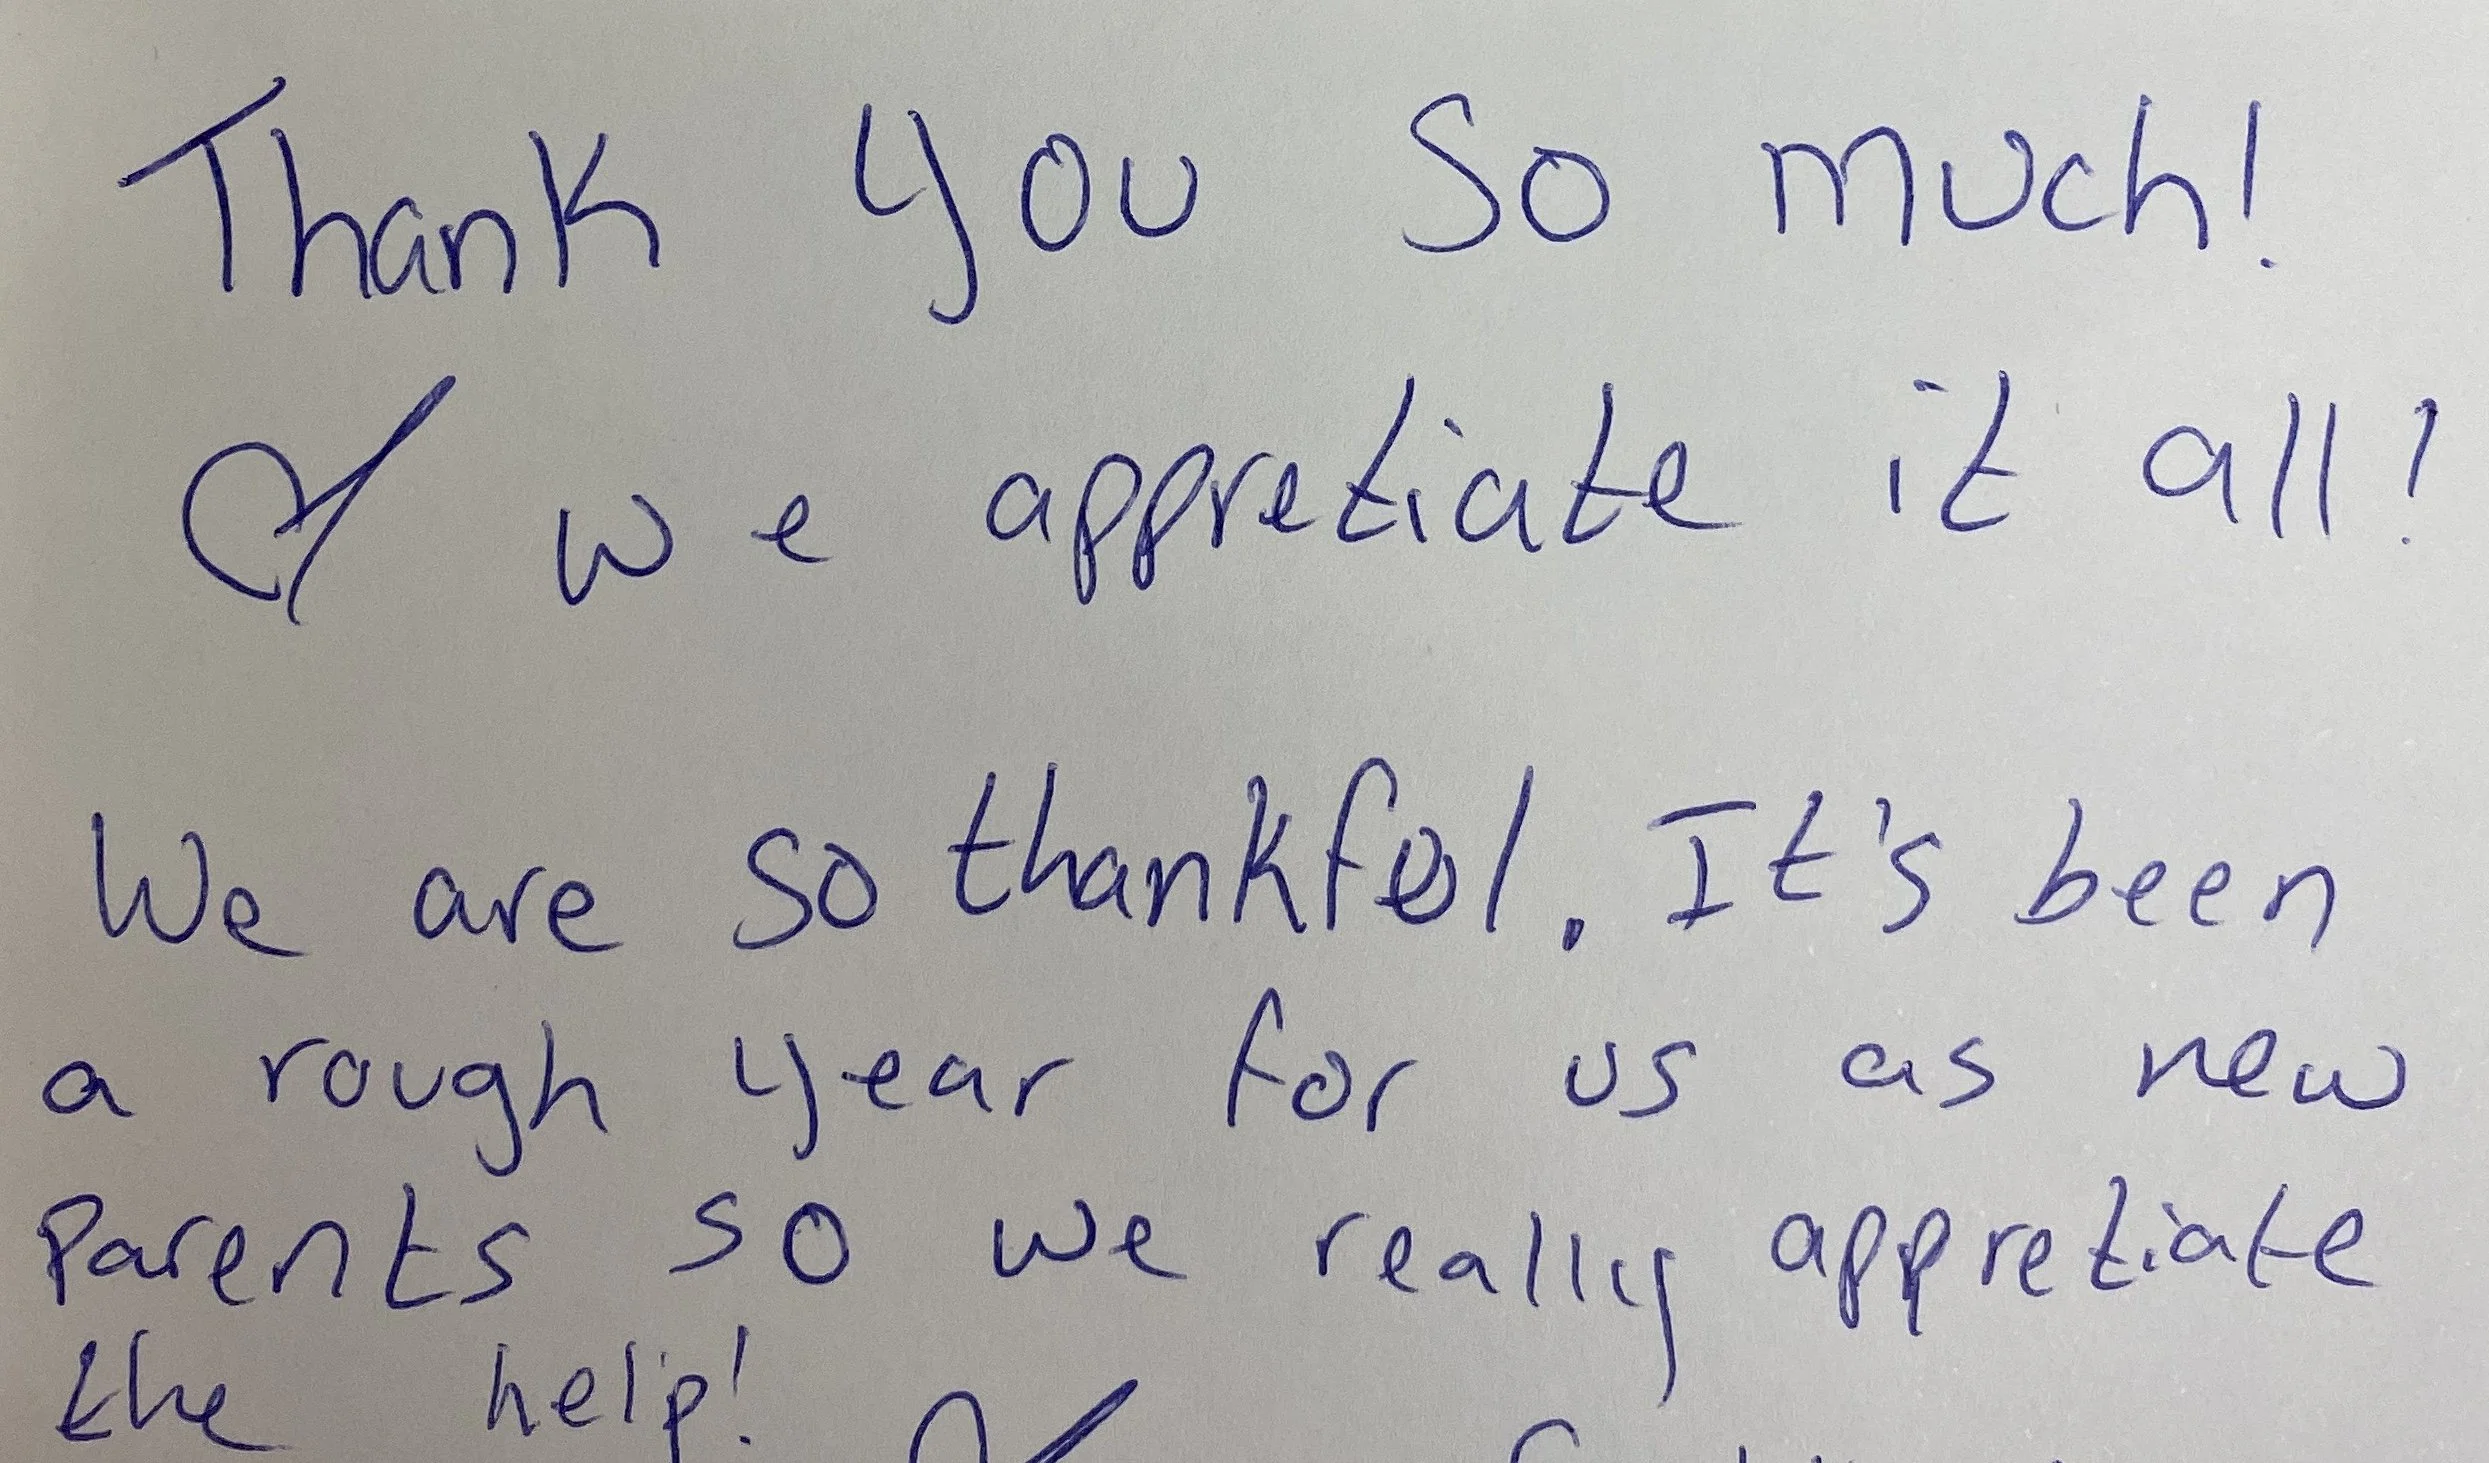 Thank you so much!
♡ we appretiate it all!
We are so thankful. It's been
a rough year for us as new
parents so we really appretiate
the help! ♡